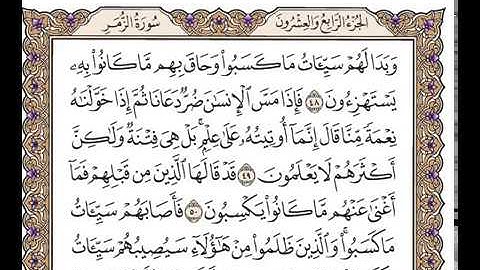 سُورَةُ الزُّمَرِ الجُزْءُ الرَّابِعُ وَالعِشْرُونَ
وَبَدَا لَهُمْ سَيِّـَٔاتُ مَا كَسَبُوا۟ وَحَاقَ بِهِم مَّا كَانُوا۟ بِهِۦ
يَسْتَهْزِءُونَ ٤٨ فَإِذَا مَسَّ ٱلْإِنسَـٰنَ ضُرٌّ دَعَانَا ثُمَّ إِذَا خَوَّلْنَـٰهُ
نِعْمَةً مِّنَّا قَالَ إِنَّمَآ أُوتِيتُهُۥ عَلَىٰ عِلْمٍۭ ۚ بَلْ هِىَ فِتْنَةٌ وَلَـٰكِنَّ
أَكْثَرَهُمْ لَا يَعْلَمُونَ ٤٩ قَدْ قَالَهَا ٱلَّذِينَ مِن قَبْلِهِمْ فَمَآ
أَغْنَىٰ عَنْهُم مَّا كَانُوا۟ يَكْسِبُونَ ٥٠ فَأَصَابَهُمْ سَيِّـَٔاتُ
مَا كَسَبُوا۟ ۚ وَٱلَّذِينَ ظَلَمُوا۟ مِنْ هَـٰٓؤُلَآءِ سَيُصِيبُهُمْ سَيِّـَٔاتُ